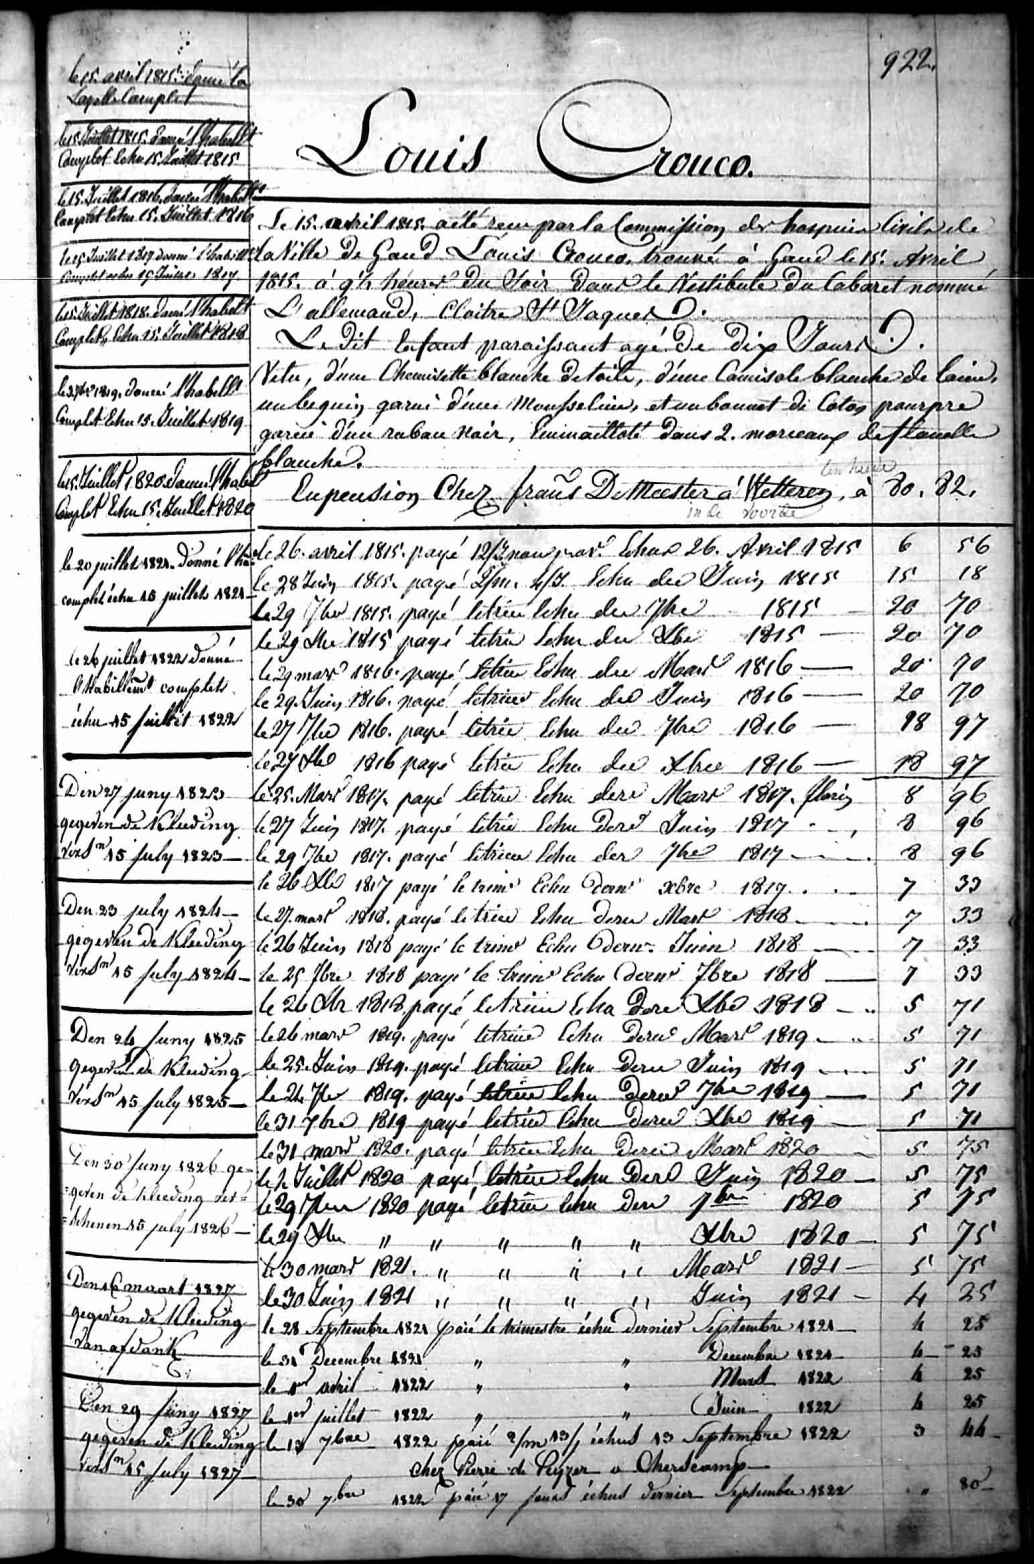 922.
Louis Crouco.
le 15. avril 1815. donné la
Layette Complet
le 15. Juillet 1815. donné l'habillt
Complet Echu 15. Juillet 1815
le 15. Juillet 1816. donné l'habillt
Complet Echu 15. Juillet 1816
le 15 Juillet 1817 donné l'habillt
Complet echu 15 Juillet 1817.
le 15. Juillet 1818. donné l'habillt
Complet, Echu 15. Juillet 1818
1819. donné l'habillt
Complet Echu 15. Juillet 1819
le 15. Juillet 1820. donné l'habil
Complet Echu 15. Juillet 1820
le 20 juillet 1821. Donné l'ha
complet échu 15 juillet 1821 —
le 26 juillet 1822 donné
l'Habillemt complet
échu 15 Juillet 1822
Den 27 juny 1823
gegeven de Kleeding
versn 15 july 1823 —
Den 23 july 1824 —
gegeven de Kleeding
versn 15 july 1824 —
Den 26 juny 1825
gegeven de Kleeding
versn 15 july 1825 —
Den 30 juny 1826 ge-
=geven de Kleeding ver=
=schenen 15 july 1826 —
Den 16 maart 1827
gegeven de Kleeding
van afdank
Den 29 juny 1827
gegeven de Kleeding
versn 15 july 1827 —
Le 15. avril 1815. a été recu par la Commission des hospices Civils de
la Ville de Gand Louis Crouco. trouvé à Gand le 15. Avril
1815. à 9½ heures du Soir dans le Vestibule du Cabaret nommé
L'allemand, Cloitre St Jaques.
Le dit Enfant paraissant agé de dix Jours.
Vetu, d'une Chemisette blanche de toile, d'une Camisole blanche de laine,
un beguin garni d'une Mousseline, et un bonnet de Coton pourpre
garni d'un ruban noir, Emmailloté dans 2. morceaux de flanelle
blanche.
En pension Chez frans De Meester à Wetteren, à 80. 82.
le 26. avril 1815. payé Echus 26. Avril 1815 6 56
le 28 Juin 1815. payé Echu der Juin 1815 15 18
le 29 7bre 1815. payé letrim Echu der 7bre 1815 — 20 70
le 29 Xbre 1815 payé letrim Echu der Xbre 1815 — 20 70
le 29 mars 1816. payé letrim Echu der Mars 1816 — 20 70
le 29. Juin 1816. payé letrim Echu der Juin 1816 — 20 70
le 27 7bre 1816. payé letrim Echu der 7bre 1816 — 18 97
le 27 Xbre 1816 payé letrim Echu der Xbre 1816 — 18 97
le 25. Mars 1817. payé letrim Echu dere Mars 1817. florins 8 96
le 27 Juin 1817. payé letrim Echu dere Juin 1817 8 96
le 29 7bre 1817. payé letrim Echu der 7bre 1817 8 96
le 26 Xbre 1817 payé le trime Echu derne xbre 1817. 7 33
le 27. mars 1818. payé letrim Echu derne Mars 1818 7 33
le 26 Juin 1818 payé le trime Echu derne Juin 1818 7 33
le 25 7bre 1818 payé le trime Echu derne 7bre 1818 — 7 33
le 26 Xbr 1818 payé letrim Echu dere Xbre 1818 — 5 71
le 26 mars 1819. payé letrim Echu derne Mars 1819 5 71
le 25. Juin 1819. payé letrim Echu derne Juin 1819 5 71
le 24 7bre 1819. payé letrim Echu derne 7bre 1819 — 5 71
le 31 7bre 1819 payé letrim Echu derne Xbre 1819 — 5 71
le 31 mars 1820. payé letrim Echu derne Mars 1820 5 75
le 1 Juillet 1820 payé letrim Echu dere Juin 1820 — 5 75
le 29 7bre 1820 payé letrim Echu dere 7bre 1820 5 75
le 29 Xbre " " " " " Xbre 1820 — 5 75
le 30 mars 1821. " " " " Mars 1821 — 5 75
le 30 Juin 1821 " " " " Juin 1821 — 4 25
le 28 Septembre 1821 payé le trimestre échu dernier Septembre 1821 — 4 25
le 31 Decembre 1821 " " Decembre 1821 — 4 25
le 1er avril 1822 " " Mars 1822 4 25
le 1er juillet 1822 " " Juin 1822 4 25
le 13 7bre 1822 payé 2/m 13/j échus 13 Septembre 1822 3 44
chez Pierre de Puyzer a Cherscamp
le 30 7bre 1822 payé 17 jours échus dernier Septembre 1822 " 80